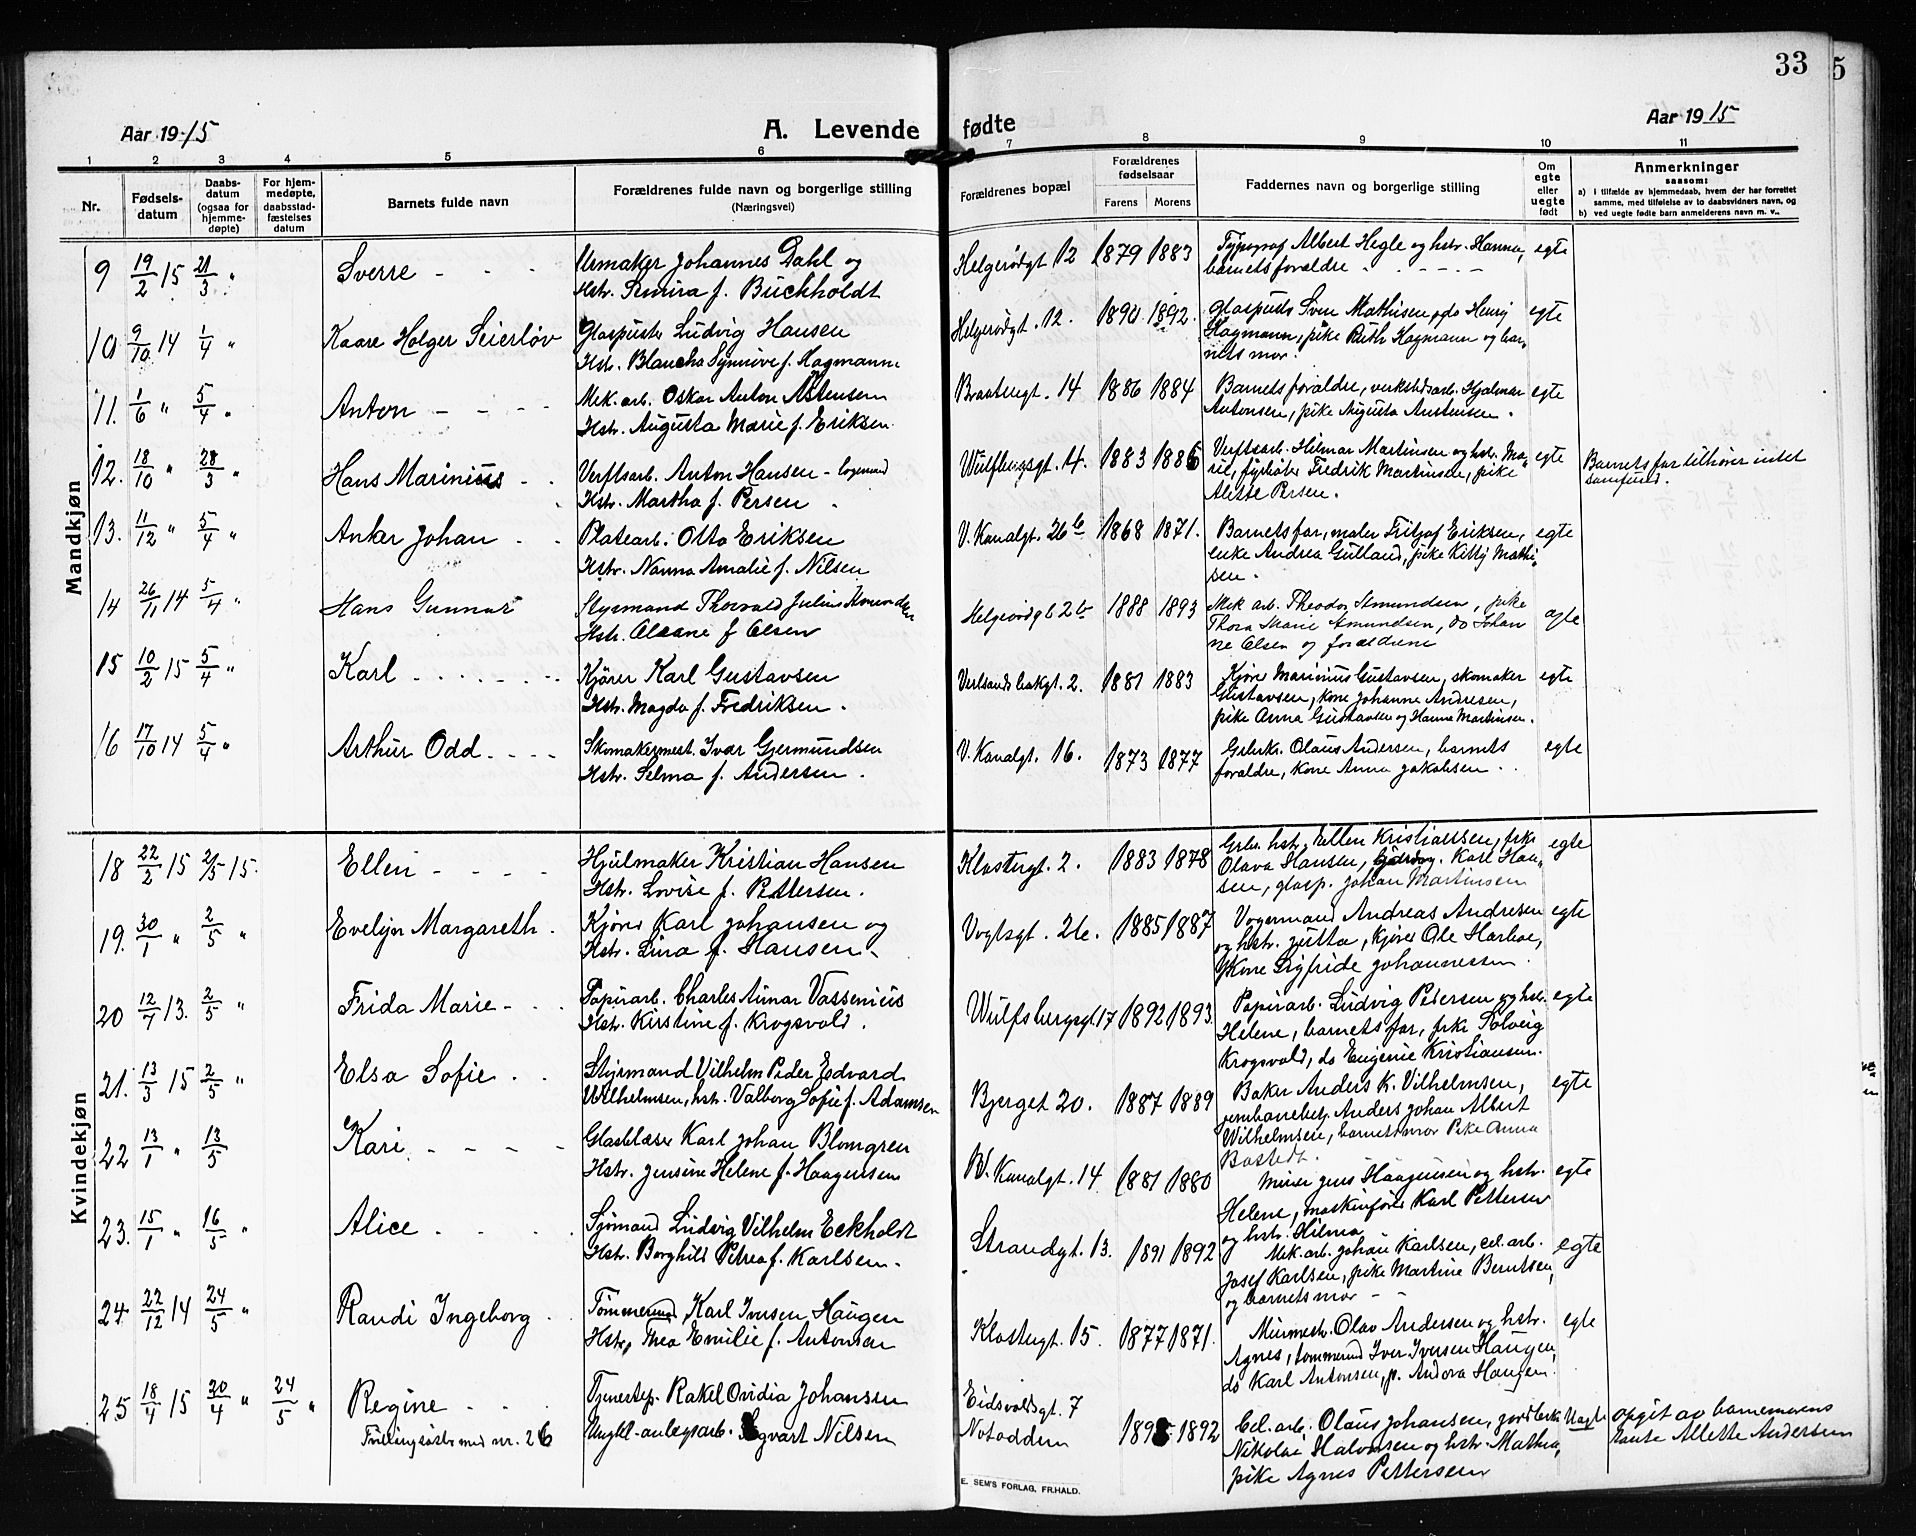 33
5
Aar 1915
A. Levende fødte
Aar 1915
1 2 3 4 5 6 7 8 9 10 11
Nr.
Fødsels-
datum
Daabs-
datum
(ogsaa for
hjemme-
døpte)
For hjem-
medøpte,
daabsstad-
fæstelses
datum
Barnets fulde navn
Forældrenes fulde navn og borgerlige stilling
(Næringsvei)
Forældrenes bopæl
Forældrenes
fødselsaar
Farens Morens
Faddernes navn og borgerlige stilling
Om
egte
eller
uegte
født
Anmerkninger
saasom:
a) i tilfælde av hjemmedaab, hvem der har forrettet
samme, med tilføielse av to daabsvidners navn, og
b) ved uegte fødte barn anmelderens navn m. v.
Mandkjøn
9 19/2 15 21/3 " Sverre
Urmaker Johannes Dahl og
Hstr. f. Buckholdt
Helgerødgt 12 1879 1883
Typograf Albert Hegle og hstr. Hanna,
barnets forældre
egte
10 9/10 14 1/4 " Kaare Holger Seierløv
Glaspuster Ludvig Hansen
Hstr. Blancha Synnöve f. Hagmann
Helgerødgt. 12. 1890 1892.
Glaspuds Sven Mathisen, do Henry
Hagmann, pike Ruth Hagmann og bar-
nets mor.
egte
11. 1/6 " 5/4 " Anton
Mek. arb. Oskar Anton Astensen
Hstr. Augusta Marie f. Eriksen
Braatengt. 14 1886 1884
Barnets forældre, verkstedsarb. Hjalmar
Antonsen, pike Augusta Austensen.
egte
12. 18/10 " 28/3 " Hans Marinius
Verftsarb. Anton Hansen - logemand
Hstr. Martha f. Persen
Wulfbergsgt. 4. 1883 1886
Verftsarb. Hilmar Martinsen og hstr. Ma-
rie, fyrbøter Fredrik Martinsen, pike
Alette Persen.
egte
Barnets far tilhører intet
samfund.
13. 11/12 " 5/4 " Anker Johan
Platearb. Otto Eriksen
Hstr. Nanna Amalie f. Nilsen
V. Kanalgt. 26 b 1868 1871.
Barnets far, maler Fritjof Eriksen,
enke Andrea Gulland, pike Kitty Mathi-
sen.
egte
14 26/11 14 5/4 " Hans Gunnar
Styrmand Thorvald Julius Amundsen
Hstr. f Olsen
1888 1893
Mek arb. Theodor Amundsen, pike
Thora Marie Amundsen, do Johan
ne Olsen og forældrene
egte
15 10/2 15 5/4 " Karl
Kjører Karl Gustavsen
Hstr. Magda f. Fredriksen.
2. 1881 1883
Kjører Marinius Gustavsen, skomaker
Gustavsen, kone Johanne Andresen,
pike Anna Gustavsen og Hanna Martinsen.
egte
16 17/10 14 5/4 " Arthur Odd
Skomakermest. Ivar Gjermundsen
Hstr. Selma f. Andersen.
V. Kanalgt. 16. 1873 1877
Olaus Andersen, barnets
forældre, kone Anna Jakobsen
egte
Kvindekjøn
18 22/2 15 2/5 15. Ellen
Hjulmaker Kristian Hansen
Hstr. Lovise f. Pettersen.
Klostergt. 2. 1883 1878
hstr. Ellen Kristiansen, pike
Olava Hansen, Karl Han-
sen, glasp. Johan Martinsen
egte
19. 30/1 " 2/5 " Evelyn Margareth
Kjører Karl Johansen og
Hstr. Lina f. Hansen
Vogtsgt. 26. 1885 1887
Vogermand Andreas Andresen
og hstr. Jutta, kjører Ole Harboe,
Kone Sigfride Johannessen.
egte
20 12/7 13. 2/5 " Frida Marie
Papirarb. Charles Aimar Vassenius
Hstr. Kirstine f. Krogsvold.
Wulfsbergsgt 17 1892 1893.
Papirarb. Ludvig Petersen og hstr.
Helene, barnets far, pike Solveig
Krogsvold, do Eugenie Kristiansen.
egte
21. 13/3 15 2/5 " Elsa Sofie
Styrmand Vilhelm Peder Edvard
Wilhelmsen, hstr. Valborg Sofie f. Adamsen
Bjerget 20. 1887 1889
Baker Anders K. Vilhelmsen,
Anders Johan Albert
Wilhelmsen, barnets mor Pike Anna
Bastedt.
egte
22 13/1 " 13/5 Kari
Glasblæser Karl Johan Blomgren
Hstr. Jensine Helene f. Haagensen
V. Kanalgt. 14 1881 1880
Murer Jens Haagensen og hstr.
Helene, maskinfører Karl Pettersen
og hstr. Hilma
egte
23. 15/1 " 16/5 " Alice
Sjömand Ludvig Vilhelm Eckholdt
Hstr. Borghild Petrea f. Karlsen.
Strandgt. 13. 1891 1892
Mek. arb. Johan Karlsen, cel. arb.
Josef Karlsen, pike Martine Berntsen,
og barnets mor
egte
24. 22/12 14 24/5 " Randi Ingeborg
Tömmermd Karl Iversen Haugen
Hstr, Thea Emilie f. Antonsen
Klostergt. 15. 1877 1871.
Murmestr. Olav Andersen og hstr.
Agnes, tømmermd Iver Iversen Haugen,
do Karl Antonsen, p. Andora Haugen.
egte
25 18/4 15 20/4 " 24/5 " Regine
Tvillingsøster med nr. 26
Tjenestep. Rakel Ovidia Johansen
Ungkl. anlegsarb. Sigvart Nilsen
Eidsvoldsgt. 7
Notodden
1895 1892
Cel. arb. Olaus Johansen, jordbruker
Nikolai Halvorsen og hstr. Mathea,
pike Agnes Pettersen
Uegte
opgit av barnemorens
tante Allette Andersen
E. SEM'S FORLAG, FR.HALD.